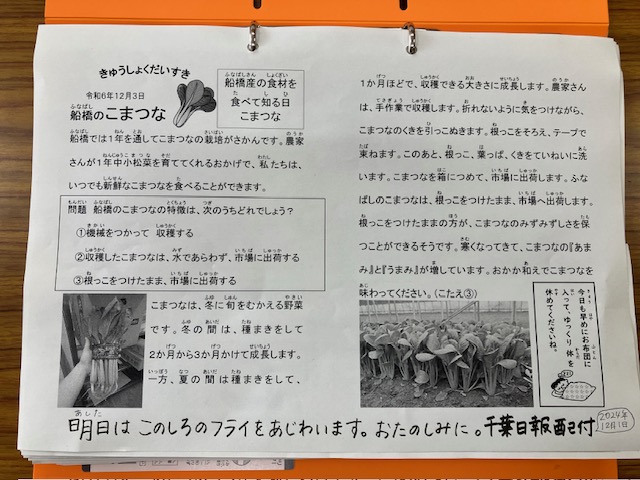 きゅうしょくだいすき
令和6年12月3日
船橋のこまつな
船橋産の食材を
食べて知る日
こまつな
船橋では1年を通してこまつなの栽培がさかんです。農家
さんが1年中小松菜を育ててくれるおかげで、私たちは、
いつでも新鮮なこまつなを食べることができます。
問題 船橋のこまつなの特徴は、次のうちどれでしょう？
①機械をつかって 収穫する
②収穫したこまつなは、水であらわず、市場に出荷する
③根っこをつけたまま、市場に出荷する
こまつなは、冬に旬をむかえる野菜
です。冬の間は、種まきをして
2か月から3か月かけて成長します。
一方、夏の間は種まきをして、
1か月ほどで、収穫できる大きさに成長します。農家さん
は、手作業で収穫します。折れないように気をつけながら、
こまつなのくきを引っこぬきます。根っこをそろえ、テープで
束ねます。このあと、根っこ、葉っぱ、くきをていねいに洗
います。こまつなを箱につめて、市場に出荷します。ふな
ばしのこまつなは、根っこをつけたまま、市場へ出荷します。
根っこをつけたままの方が、こまつなのみずみずしさを保
つことができるそうです。寒くなってきて、こまつなの『あま
み』と『うまみ』が増しています。おかか和えでこまつなを
味わってください。(こたえ③)
今日も早めにお布団に
入って、ゆっくり体を
休めてくださいね。
明日は このしろのフライをあじわいます。おたのしみに。千葉日報配付
2024年
12月1日